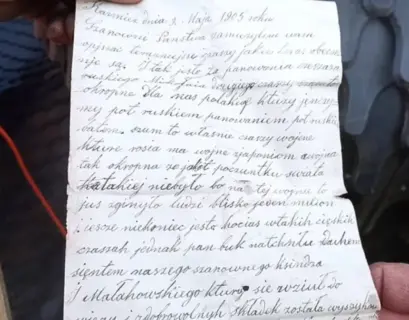 Kawnice dnia 3 Maja 1905 roku
Szanowni Państwo zaznaczyłem wam
opis terazniejszy czasy jakie teraz obec
nie są. I tak jest za panowania cesarza
ruskiego Mikołaja drugiego czasy
okropne dla nas polaków którzy jesteśmy
my pot ruskiem panowaniem
som to właśnie czasy wojne
kture rosea ma wojne zjaponiom a wojna
tak okropna ze jakot poczuntku swiata
takiej niebyło bo na tej wojne to
jus zgineło ludzi blisko jeden milion
i iesze niekoniec jest hocias wtakich ciężkich
czasach jednak pan buk natchnoł duchem
sientem naszego szanownego ksindza
J Małahowskiego ktury sie wzioł do
zdobrowolnych składek została wyszyko